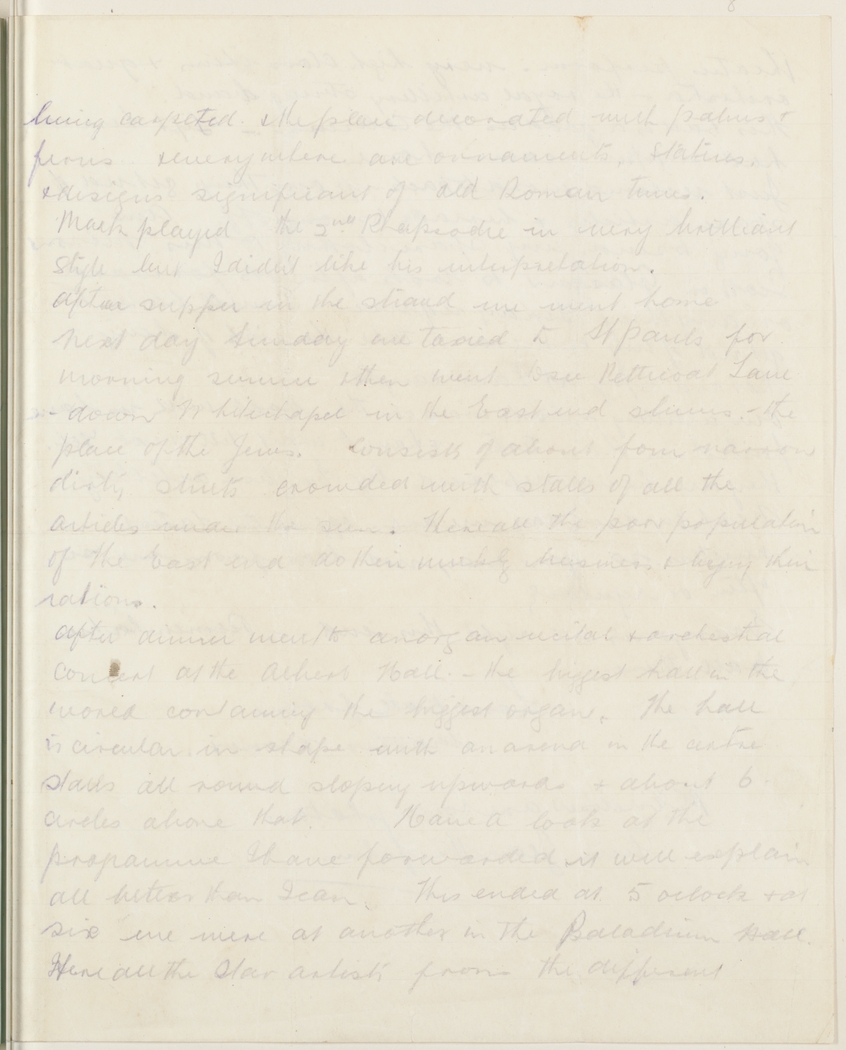 being carpeted. & the place decorated with palms &
ferns & everywhere are ornaments, statues.
& designs significant of old Roman times.
Mark played the 2nd Rhapsodie in very brilliant
style but I didn't like his interpretation.
After supper in the strand we went home
next day Sunday we taxied to St Pauls for
morning service & then went to see Petticoat Lane
- down Whitechapel in the East end slums. - the
place of the Jews. Consists of about four narrow
dirty streets crowded with stalls of all the
articles under the sun. Here all the poor population
of the East end do their weekly business & buy their
rations.
After dinner went to an organ recital & orchestral
concert at the Albert Hall. - the biggest hall in the
world containing the biggest organ. The hall
is circular in shape with an arena in the centre
stalls all round sloping upwards & about 6
circles above that. Have a look at the
programme I have forwarded it will explain
all better than I can. This ended at 5 oclock & at
six we were at another in the Paladium Hall.
Here all the star artists from the different